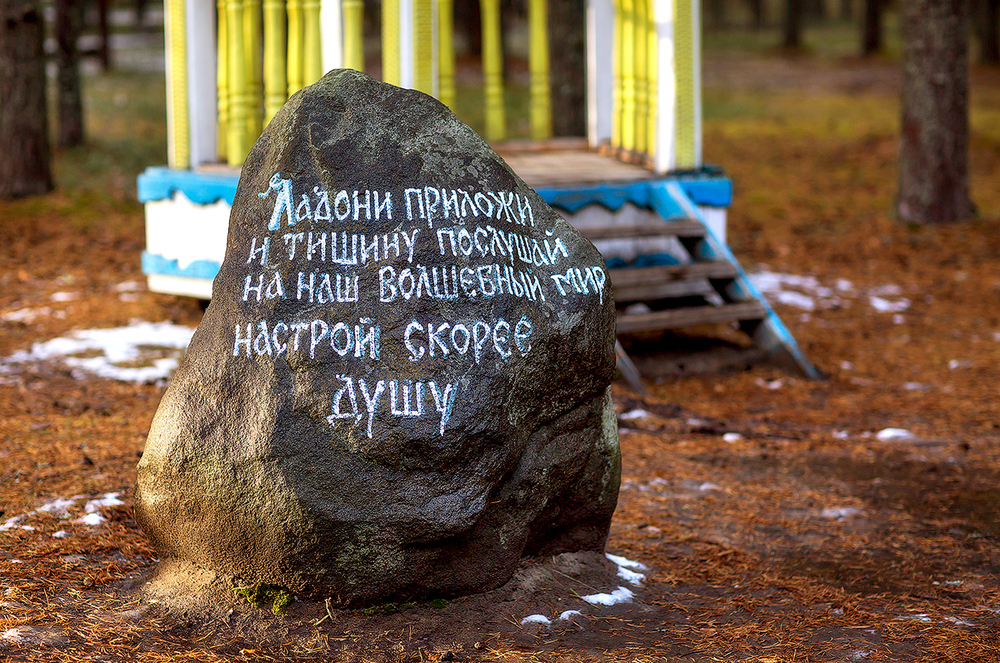 Ладони приложи
и тишину послушай
на наш волшебный мир
настрой скорее
душу